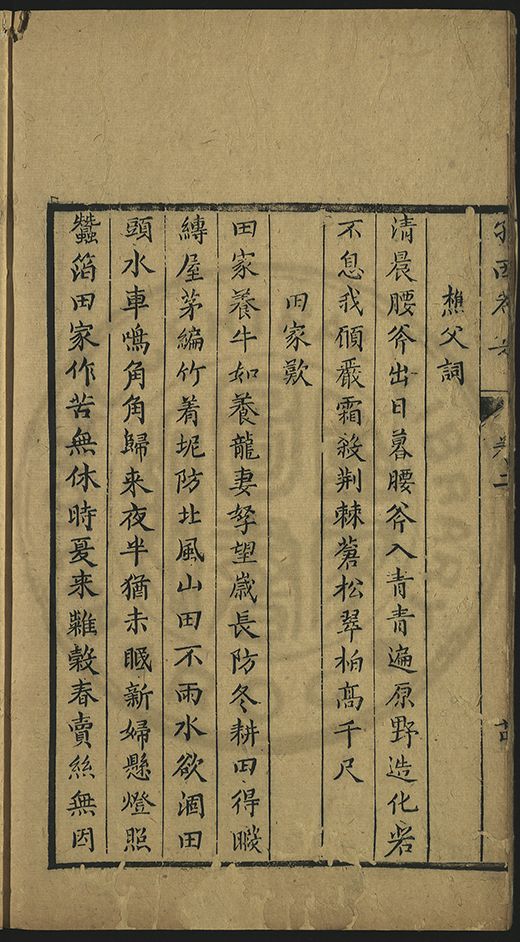 樵父詞
清晨腰斧出日暮腰斧入青青遍原野造化若
不息我願嚴霜殺荆棘蒼松翠柏髙千尺
田家歎
田家養牛如養龍妻孥望歲長防冬耕田得暇
縛屋茅編竹着坭防北風山田不雨水欲涸田
頭水車鳴角角歸来夜半猶未眠新婦懸燈照
蠶箔田家作苦無休時夏来糶榖春賣絲無因